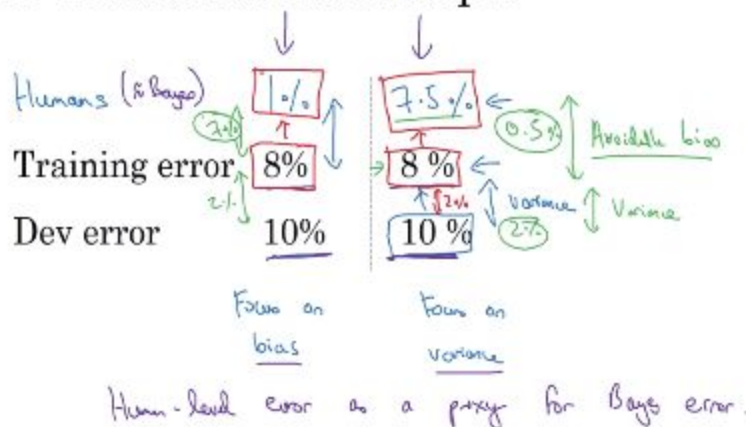 Humans (≈ Bayes) 1% 7.5%
7% 0.5% Avoidable bias
Training error 8% 8 %
2% 2% variance Variance
Dev error 10% 10 % 2%
Focus on Focus on
bias variance
Human-level error as a proxy for Bayes error.